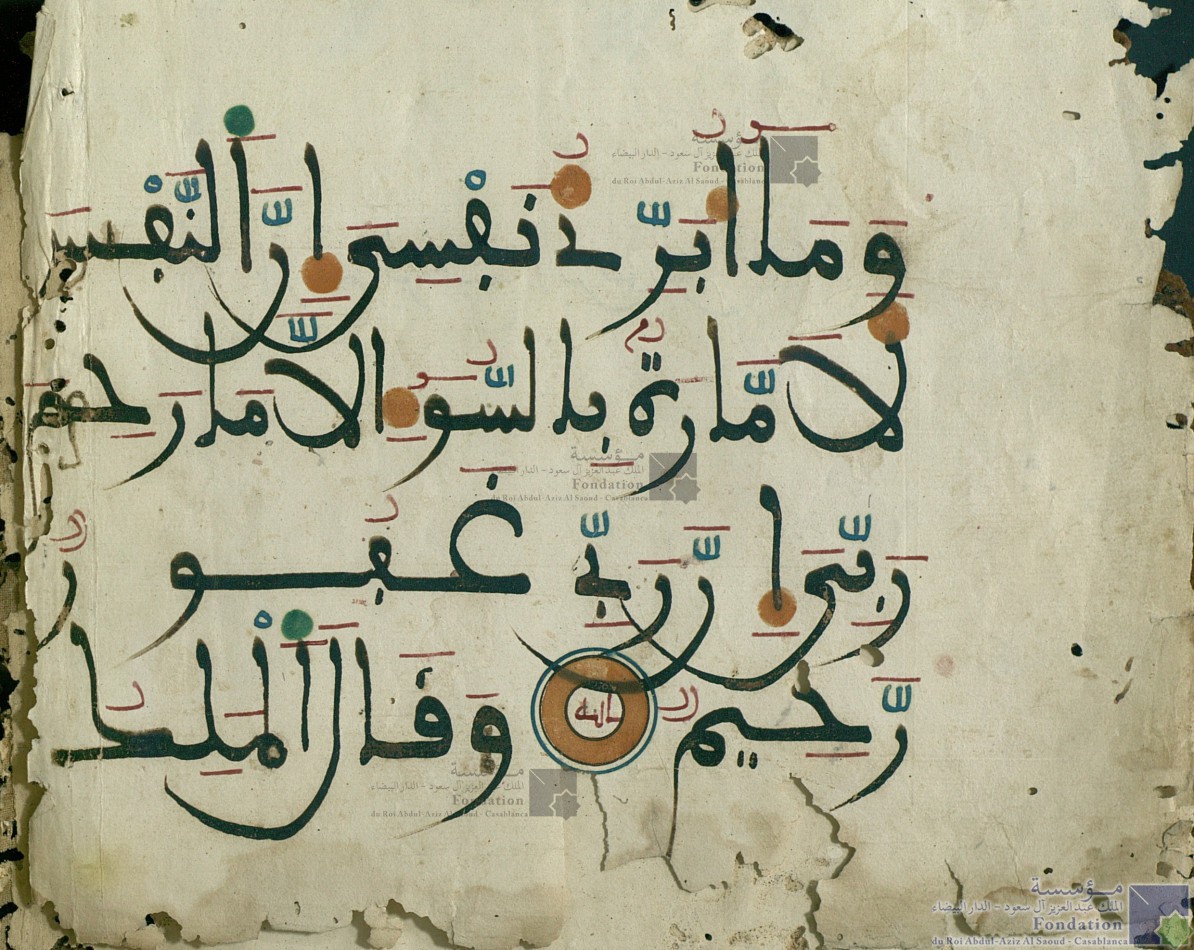 وَمَا أُبَرِّئُ نَفْسِيَ إِنَّ اَلنَّفْسَ
لَأَمَّارَةٌ بِالسُّوءِ الَّا مَا رَحِمَ
رَبِّيَ إِنَّ رَبِّي غَفُورٌ
رَّحِيمٌ وَقَالَ اَلْمَلِكُ
مؤسسة
الملك عبد العزيز آل سعود - الدار البيضاء
Fondation
du Roi Abdul-Aziz Al Saoud - Casablanca
مؤسسة
الملك عبد العزيز آل سعود - الدار البيضاء
Fondation
du Roi Abdul-Aziz Al Saoud - Casablanca
مؤسسة
الملك عبد العزيز آل سعود - الدار البيضاء
Fondation
du Roi Abdul-Aziz Al Saoud - Casablanca
مؤسسة
الملك عبد العزيز آل سعود - الدار البيضاء
Fondation
du Roi Abdul-Aziz Al Saoud - Casablanca